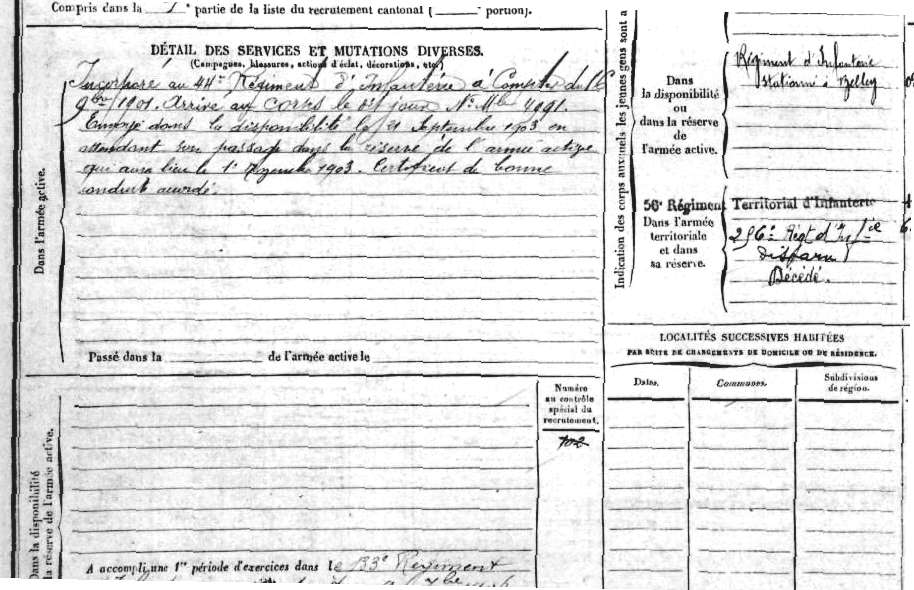 Compris dans la 1e partie de la liste du recrutement cantonal ( portion).
DÉTAIL DES SERVICES ET MUTATIONS DIVERSES.
(Campagnes, blessures, actions d'éclat, décorations, etc.)
Incorporé au 44e Régiment d'Infanterie à Compter du
9bre 1901. Arrivé au corps le dit jour. No Mle 4091.
Envoyé dans la disponibilité le 21 Septembre 1903 en
attendant son passage dans la réserve de l'armée active
qui aura lieu le 1er 1903. Certificat de bonne
conduite accordé.
Dans l'armée active.
Passé dans la de l'armée active le
Numéro
au contrôle
spécial du
recrutement.
102
Dans la disponibilité
la réserve de l'armée active.
A accompli une 1re période d'exercices dans le 133e Régiment
Indication des corps auxquels les jeunes gens sont a
Dans
la disponibilité
ou
dans la réserve
de
l'armée active.
Régiment d'Infanterie
Stationné à Belley
56e Régiment Territorial d'Infanterie
Dans l'armée
territoriale
et dans
sa réserve.
256e Régt d'Inf ie
disparu
Décédé.
LOCALITÉS SUCCESSIVES HABITÉES
PAR SUITE DE CHANGEMENTS DE DOMICILE OU DE RÉSIDENCE.
Dates.
Communes.
Subdivisions
de région.